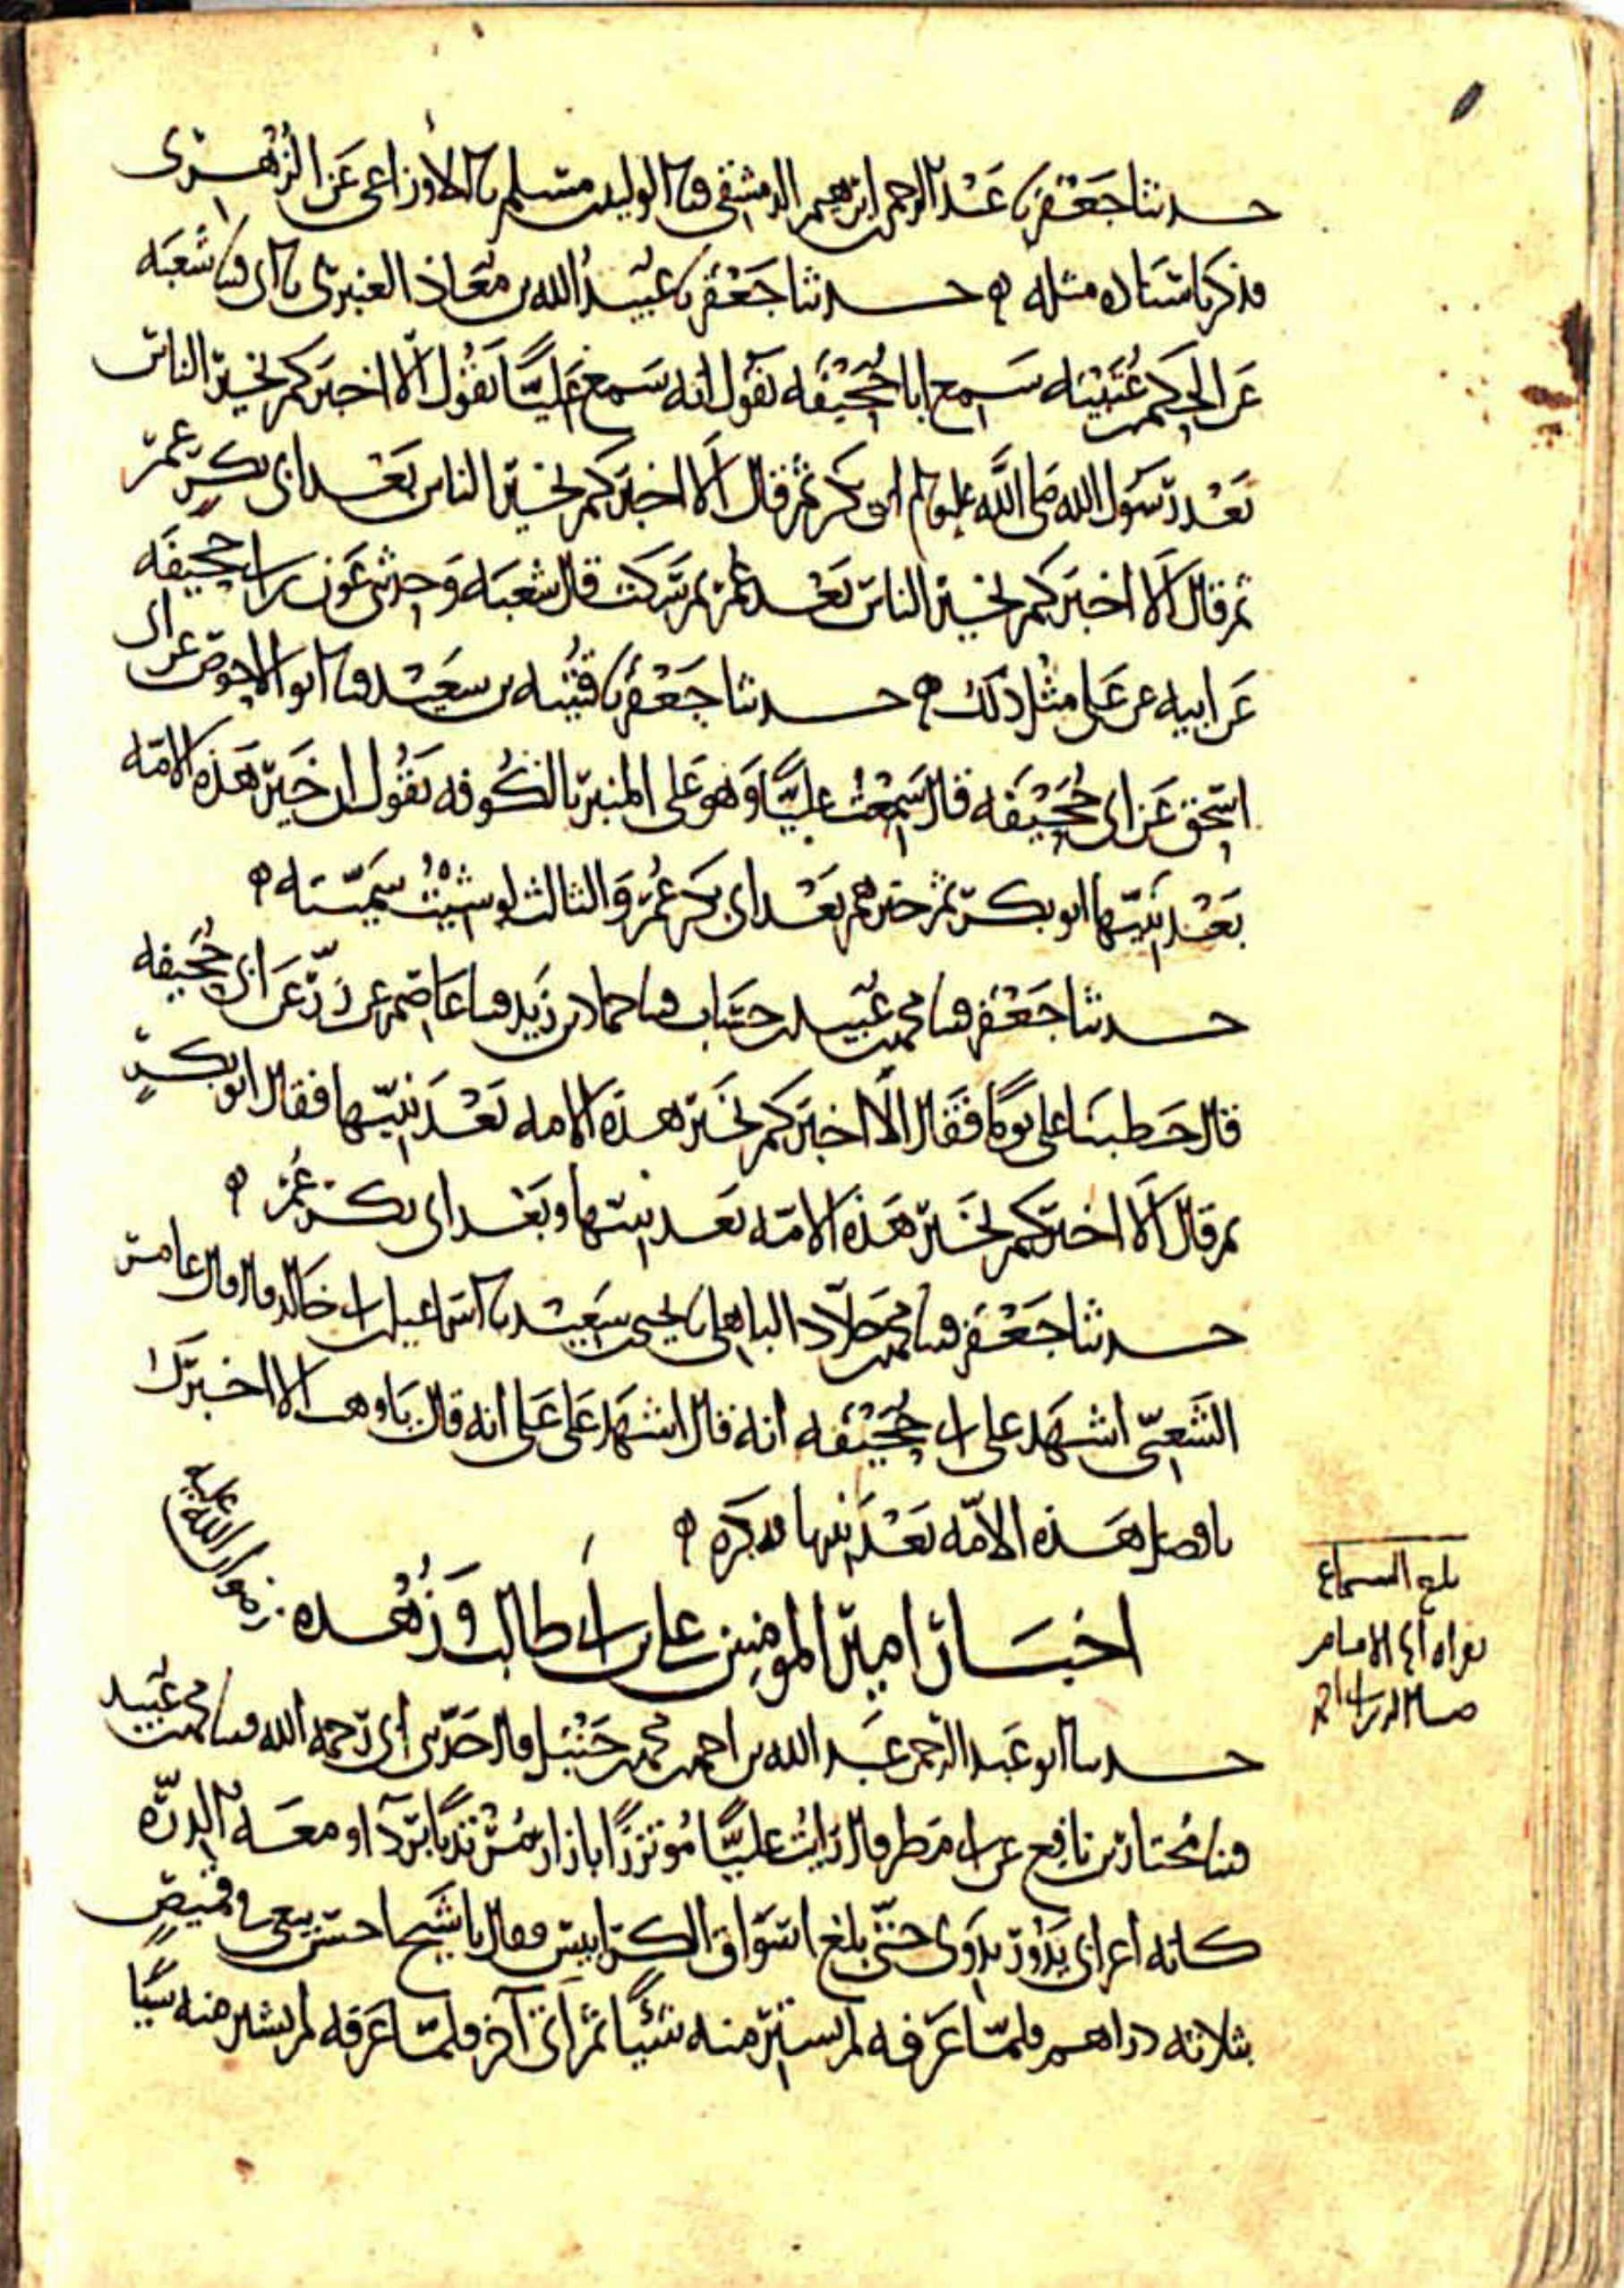 حدثنا جعفر نا عبد الرحمن بن ابرهيم الدمشقي قثنا الوليد بن مسلم نا الاوزاعي عن الزهري
فذكر باسناده مثله ه حدثنا جعفر نا عبيد الله بن معاذ العنبري نا ابي قثنا شعبه
عن الحكم بن عتيبه سمع ابا جحيفه يقول انه سمع عليًّا يقول ألا اخبركم بخير الناس
بعد رسول الله صلى الله عليه وسلم ابو بكر ثم قال ألا اخبركم بخير الناس بعد ابي بكر عمر
ثم قال ألا اخبركم بخير الناس بعد عمر ثم سكت قال شعبه وحدثني عون بن ابي جحيفه
عن ابيه عن علي مثل ذلك ه حدثنا جعفر نا قتيبه بن سعيد قثنا ابو الاحوص عن ابي
اسحق عن ابي جحيفه قال سمعت عليًّا وهو على المنبر بالكوفه يقول ان خير هذه الامه
بعد نبيّها ابو بكر ثم خيرهم بعد ابي بكر عمر والثالث لو شيت سميته ه
حدثنا جعفر قثنا محمد بن عبيد بن حساب قثنا حماد بن زيد قثنا عاصم عن زر عن ابي جحيفه
قال خطبنا علي يومًا فقال ألا اخبركم بخير هذه الامه بعد نبيّها فقال ابو بكر
ثم قال ألا اخبركم بخير هذه الامه بعد نبيها وبعد ابي بكر عمر ه
حدثنا جعفر قثنا محمد بن خلّاد الباهلي نا يحيى بن سعيد نا اسماعيل بن ابي خالد قال قال عامر
الشعبي اشهد على ابي جحيفه انه قال اشهد على علي انه قال يا وهب الا اخبرك
بافضل هذه الامّه بعد نبيها فذكره ه
اخبار امير المومنين علي بن ابي طالب وزهده رضوان الله عليه
حدثنا ابو عبد الرحمن عبد الله بن احمد بن محمد بن حنبل قال حدثني ابي رحمه الله قثنا محمد بن عبيد
قثنا مختار بن نافع عن ابي مطر قال رايت عليًّا مؤتزرًا بازار مرتديًا بردآ ومعه الدرّه
كانه اعرابي يدور بدوي حتى بلغ اسواق الكرابيس فقال يا شيخ احسن بيعي في قميص
بثلاثه دراهم فلمّا عرفه لم يشتر منه شيًا ثم أتى آخر فلمّا عرفه لم يشتر منه شيًا
بلغ السماع
بقراه الامام